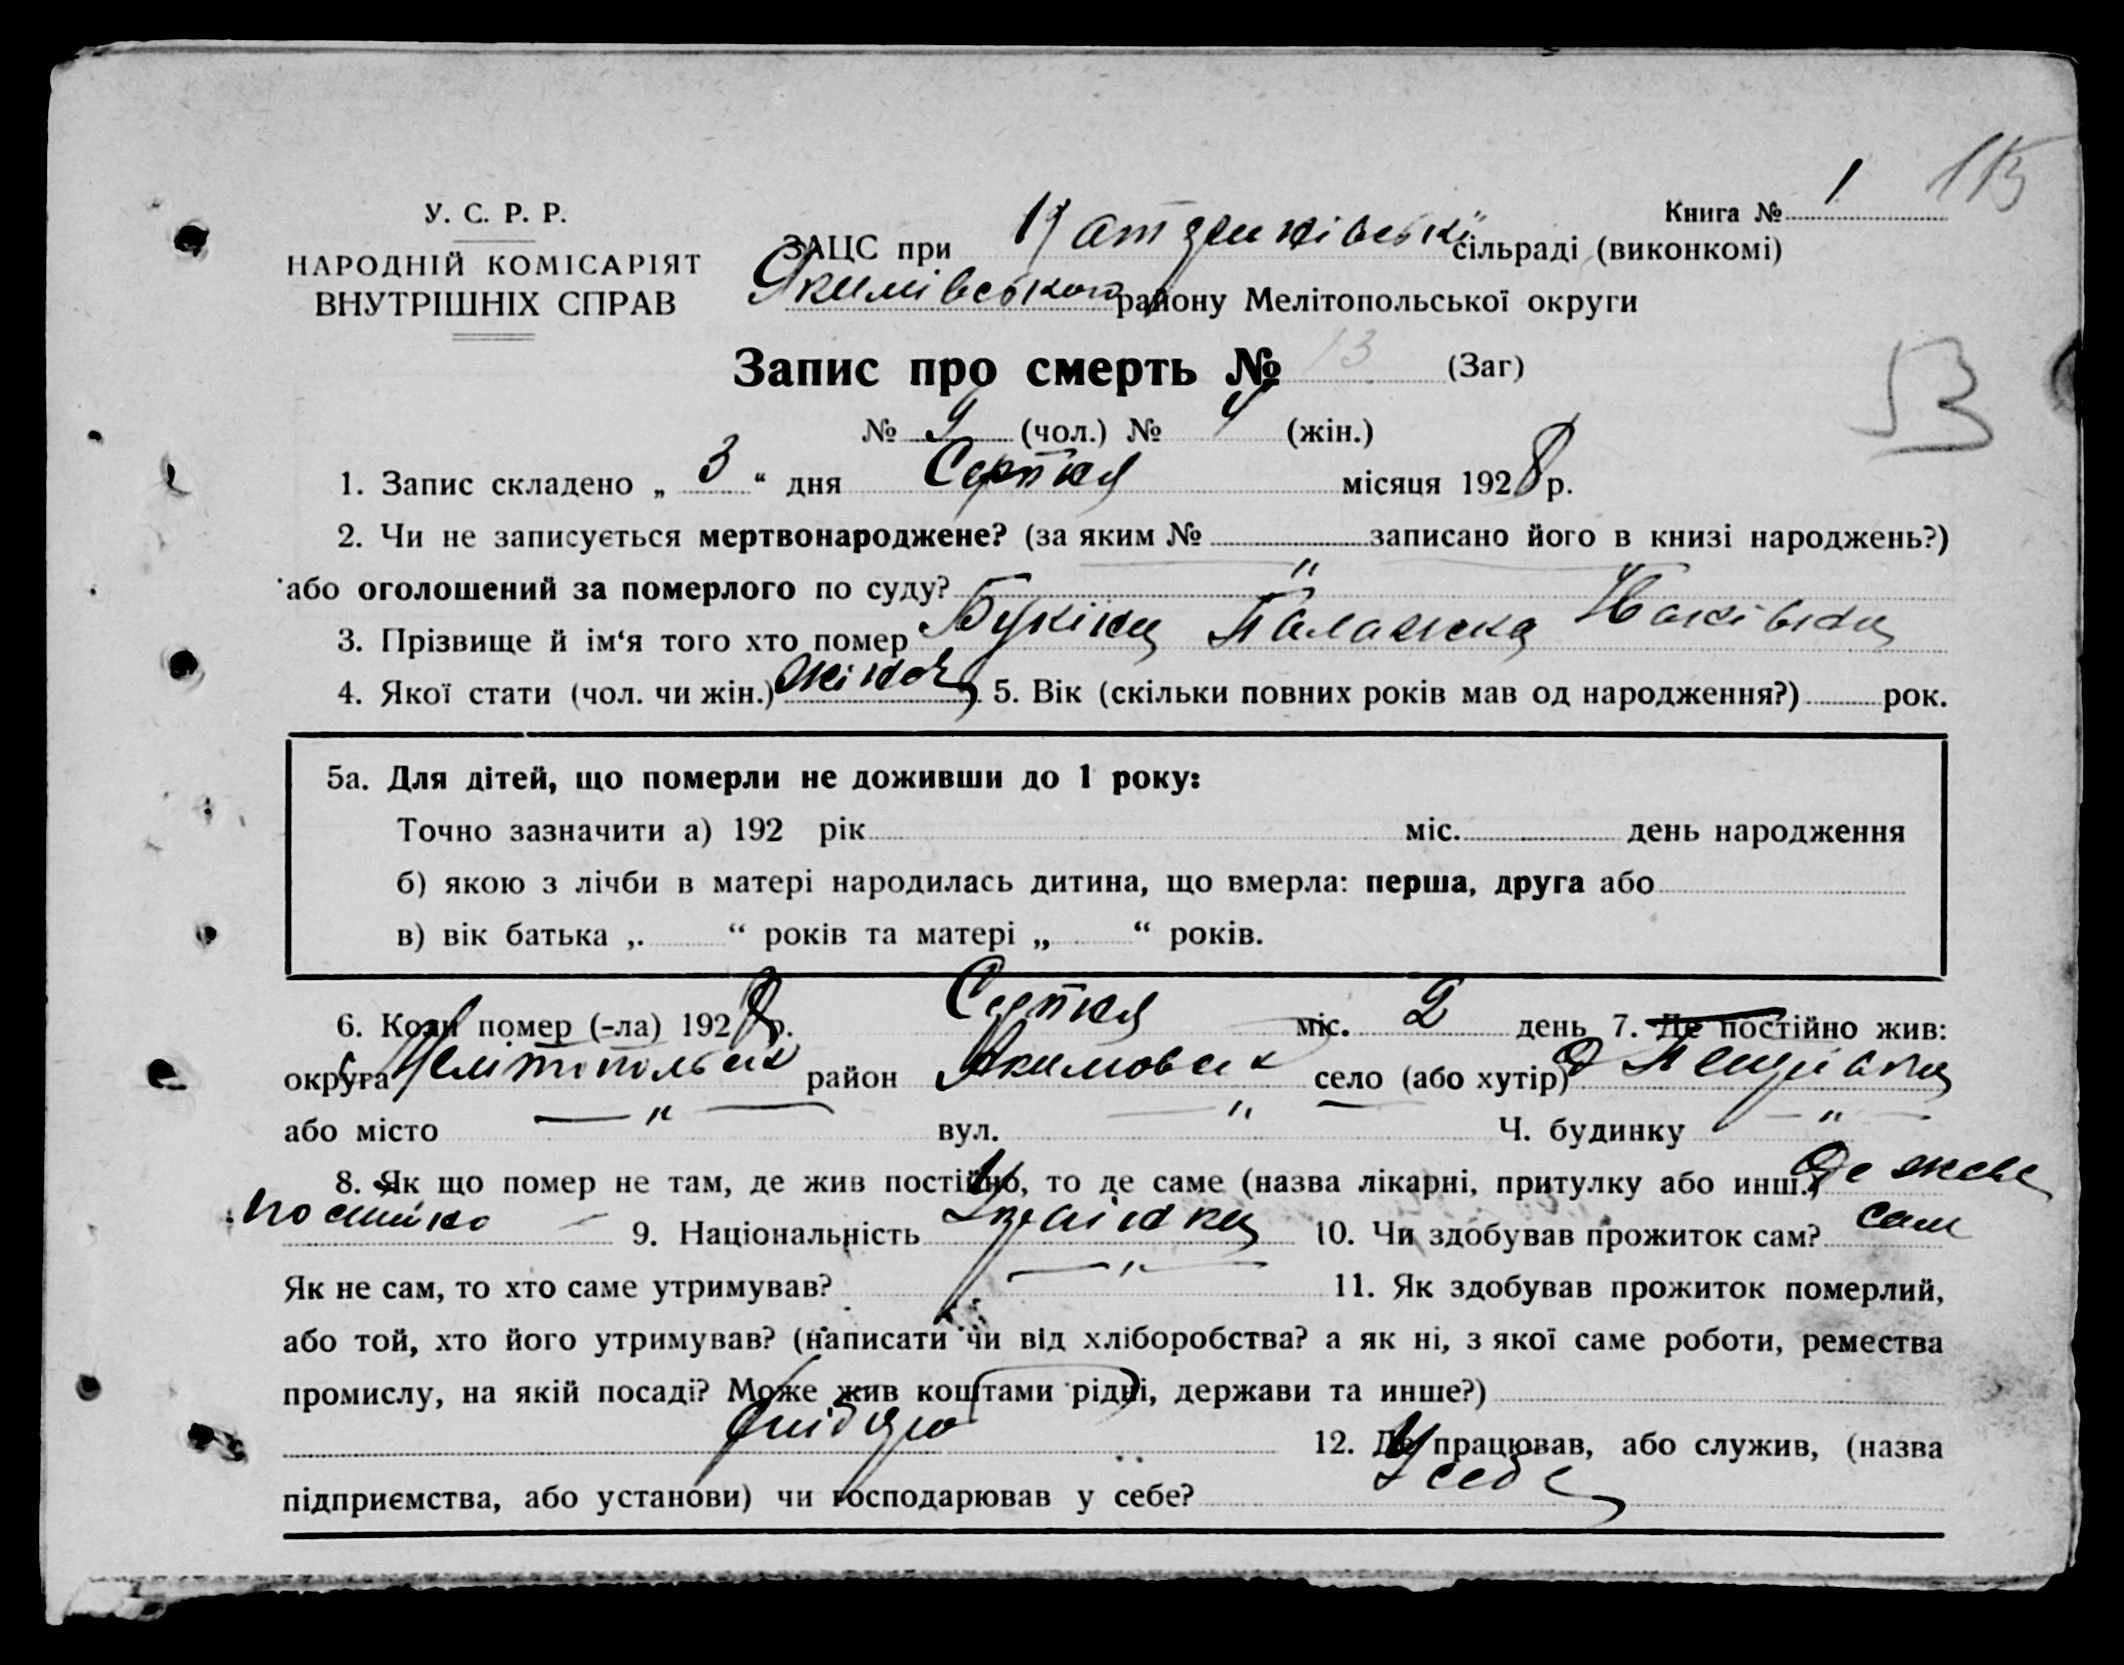 Книга № 1
115
У. С. Р. Р.
НАРОДНІЙ КОМІСАРІЯТ
ВНУТРІШНІХ СПРАВ
ЗАЦС при сільраді (виконкомі)
Якимівського району Мелітопольської округи
Запис про смерть № 13 (Заг)
53
№ 9 (чол.) № 4 (жін.)
1. Запис складено „ 3 “ дня Серпня місяця 1928 р.
2. Чи не записується мертвонароджене? (за яким № записано його в книзі народжень?)
або оголошений за померлого по суду? "
3. Прізвище й ім‘я того хто помер Палажка
4. Якої стати (чол. чи жін.) 5. Вік (скільки повних років мав од народження?) рок.
5а. Для дітей, що померли не доживши до 1 року:
Точно зазначити а) 192 рік міс. день народження
б) якою з лічби в матері народилась дитина, що вмерла: перша, друга або
в) вік батька „ “ років та матері „ “ років.
6. Коли помер (-ла) 1928 р. Серпня міс. 2 день 7. Де постійно жив:
округа Мелітопольск район Якимовск село (або хутір)
або місто — " — вул. — " — Ч. будинку — " —
8. Як що помер не там, де жив постійно, то де саме (назва лікарні, притулку або инш.) де живе
постійно 9. Національність Українка 10. Чи здобував прожиток сам? сам
Як не сам, то хто саме утримував? — " — 11. Як здобував прожиток померлий,
або той, хто його утримував? (написати чи від хліборобства? а як ні, з якої саме роботи, ремества
промислу, на якій посаді? Може жив коштами рідні, держави та инше?)
12. Де працював, або служив, (назва
підприємства, або установи) чи господарював у себе? У себе